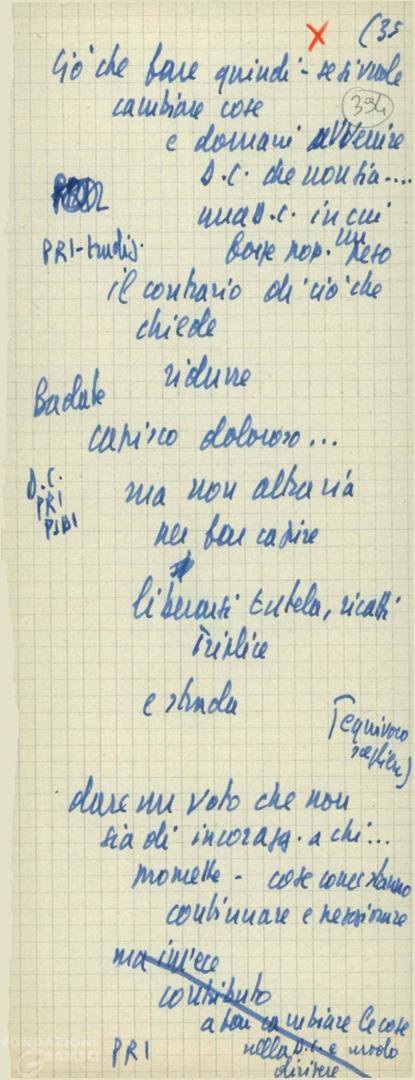 (35
394
Ciò che fare quindi - se si vuole
cambiare cose
e domani avvenire
D.C. che non sia....
una D.C. in cui
PRI-tradis.
forze pop. un peso
il contrario di ciò che
chiede
ridurre
Badate
capisco doloroso...
D.C.
PRI
PSDI
ma non altra via
per far capire
liberarsi tutela, ricatti
Triplice
e strada
(equivoco
scegliere)
dare un voto che non
sia di incoragg. a chi...
promette - cose come stanno
continuare e peggiorare
ma invece
contributo
a far cambiare le cose
nella D.C. e modo
dirigere
PRI
FONDAZIONE
GRAMSCI